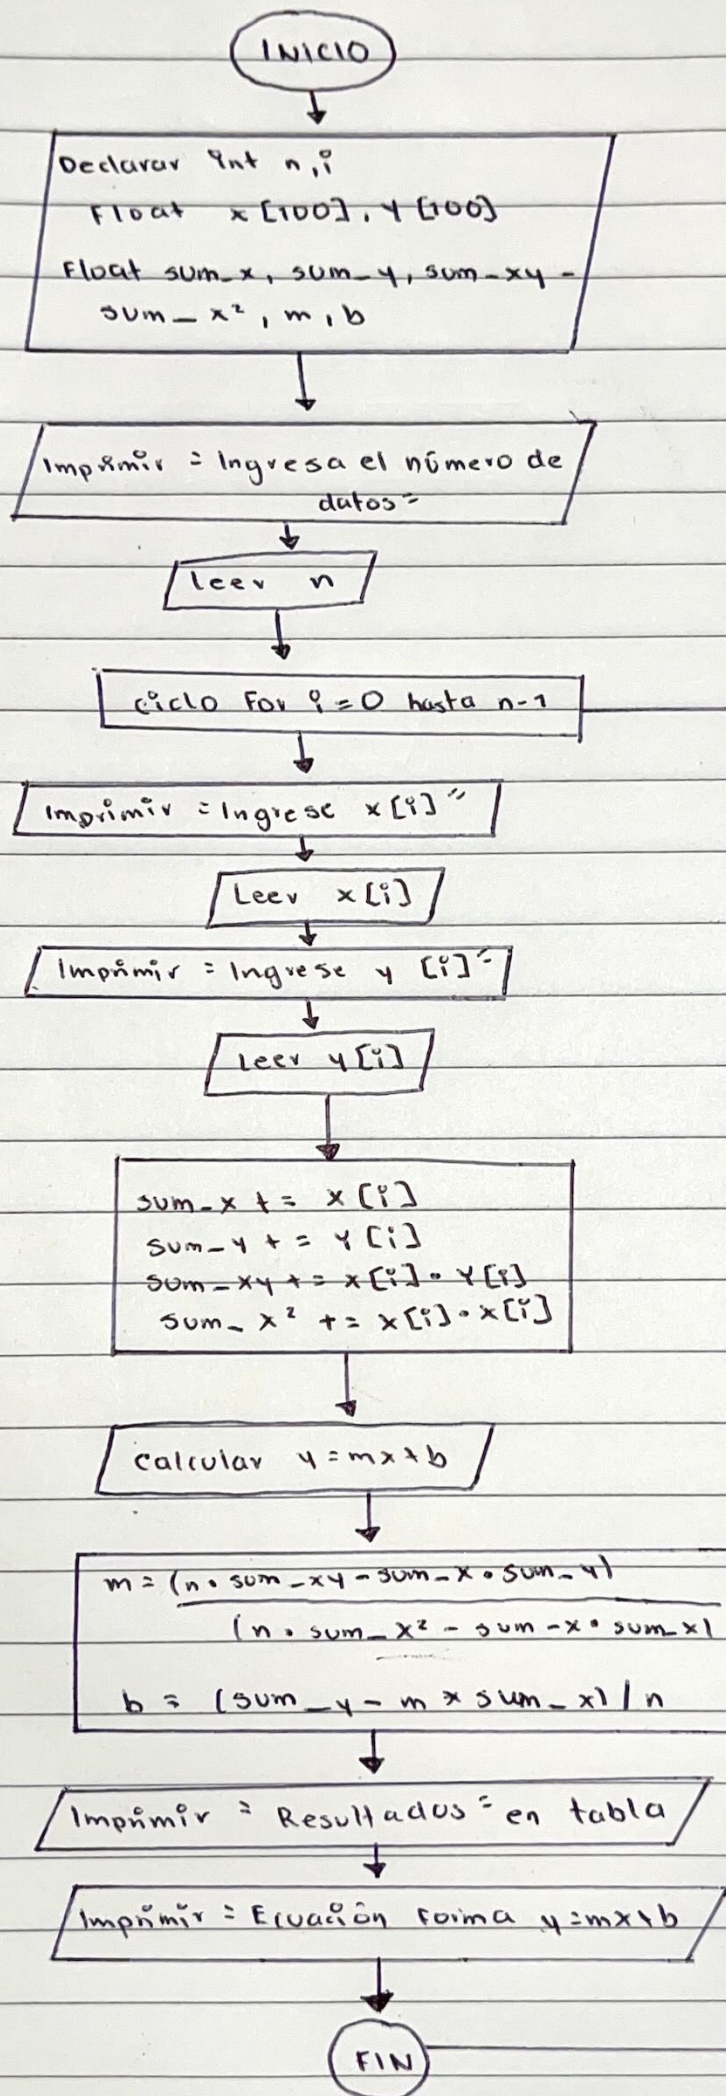 INICIO
Declarar int n,i
Float x [100], y [100]
Float sum_x, sum_y, sum_xy -
sum_x², m, b
Imprimir = Ingresa el número de
datos =
Leer n
ciclo For i = 0 hasta n-1
Imprimir = Ingrese x[i] =
Leer x[i]
Imprimir = Ingrese y [i] =
Leer y[i]
sum_x += x[i]
sum_y += y[i]
sum_xy += x[i] • y[i]
sum_x² += x[i] • x[i]
calcular y = mx+b
m = (n • sum_xy - sum_x • sum_y)
(n • sum_x² - sum-x • sum_x)
b = (sum_y - m * sum_x) / n
Imprimir = Resultados = en tabla
Imprimir = Ecuación Forma y=mx+b
FIN